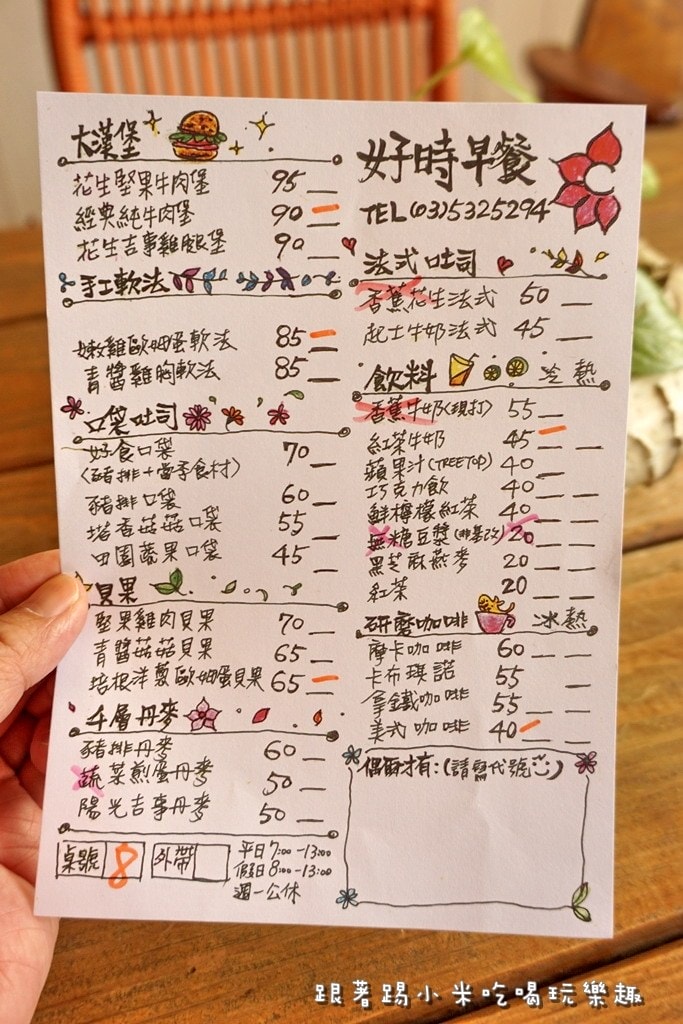 大漢堡
花生堅果牛肉堡 95
經典純牛肉堡 90
花生吉事雞腿堡 90
手工軟法
嫩雞歐姆蛋軟法 85
青醬雞胸軟法 85
口袋吐司
好食口袋 70
(豬排+當季食材)
豬排口袋 60
塔香菇菇口袋 55
田園蔬果口袋 45
貝果
堅果雞肉貝果 70
青醬菇菇貝果 65
培根洋蔥歐姆蛋貝果 65
千層丹麥
豬排丹麥 60
蔬菜煎蛋丹麥 50
陽光吉事丹麥 50
桌號 8 外帶
平日7:00-13:00
假日8:00-13:00
週一公休
好時早餐
TEL(03)5325294
法式吐司
香蕉花生法式 50
起士牛奶法式 45
飲料 冷 熱
香蕉牛奶(現打) 55
紅茶牛奶 45
蘋果汁(TREETOP) 40
巧克力飲 40
鮮檸檬紅茶 40
無糖豆漿(非基改) 20
黑芝麻燕麥 20
紅茶 20
研磨咖啡 冰 熱
摩卡咖啡 60
卡布琪諾 55
拿鐵咖啡 55
美式咖啡 40
偶爾才有:(請寫代號)
跟著踢小米吃喝玩樂趣